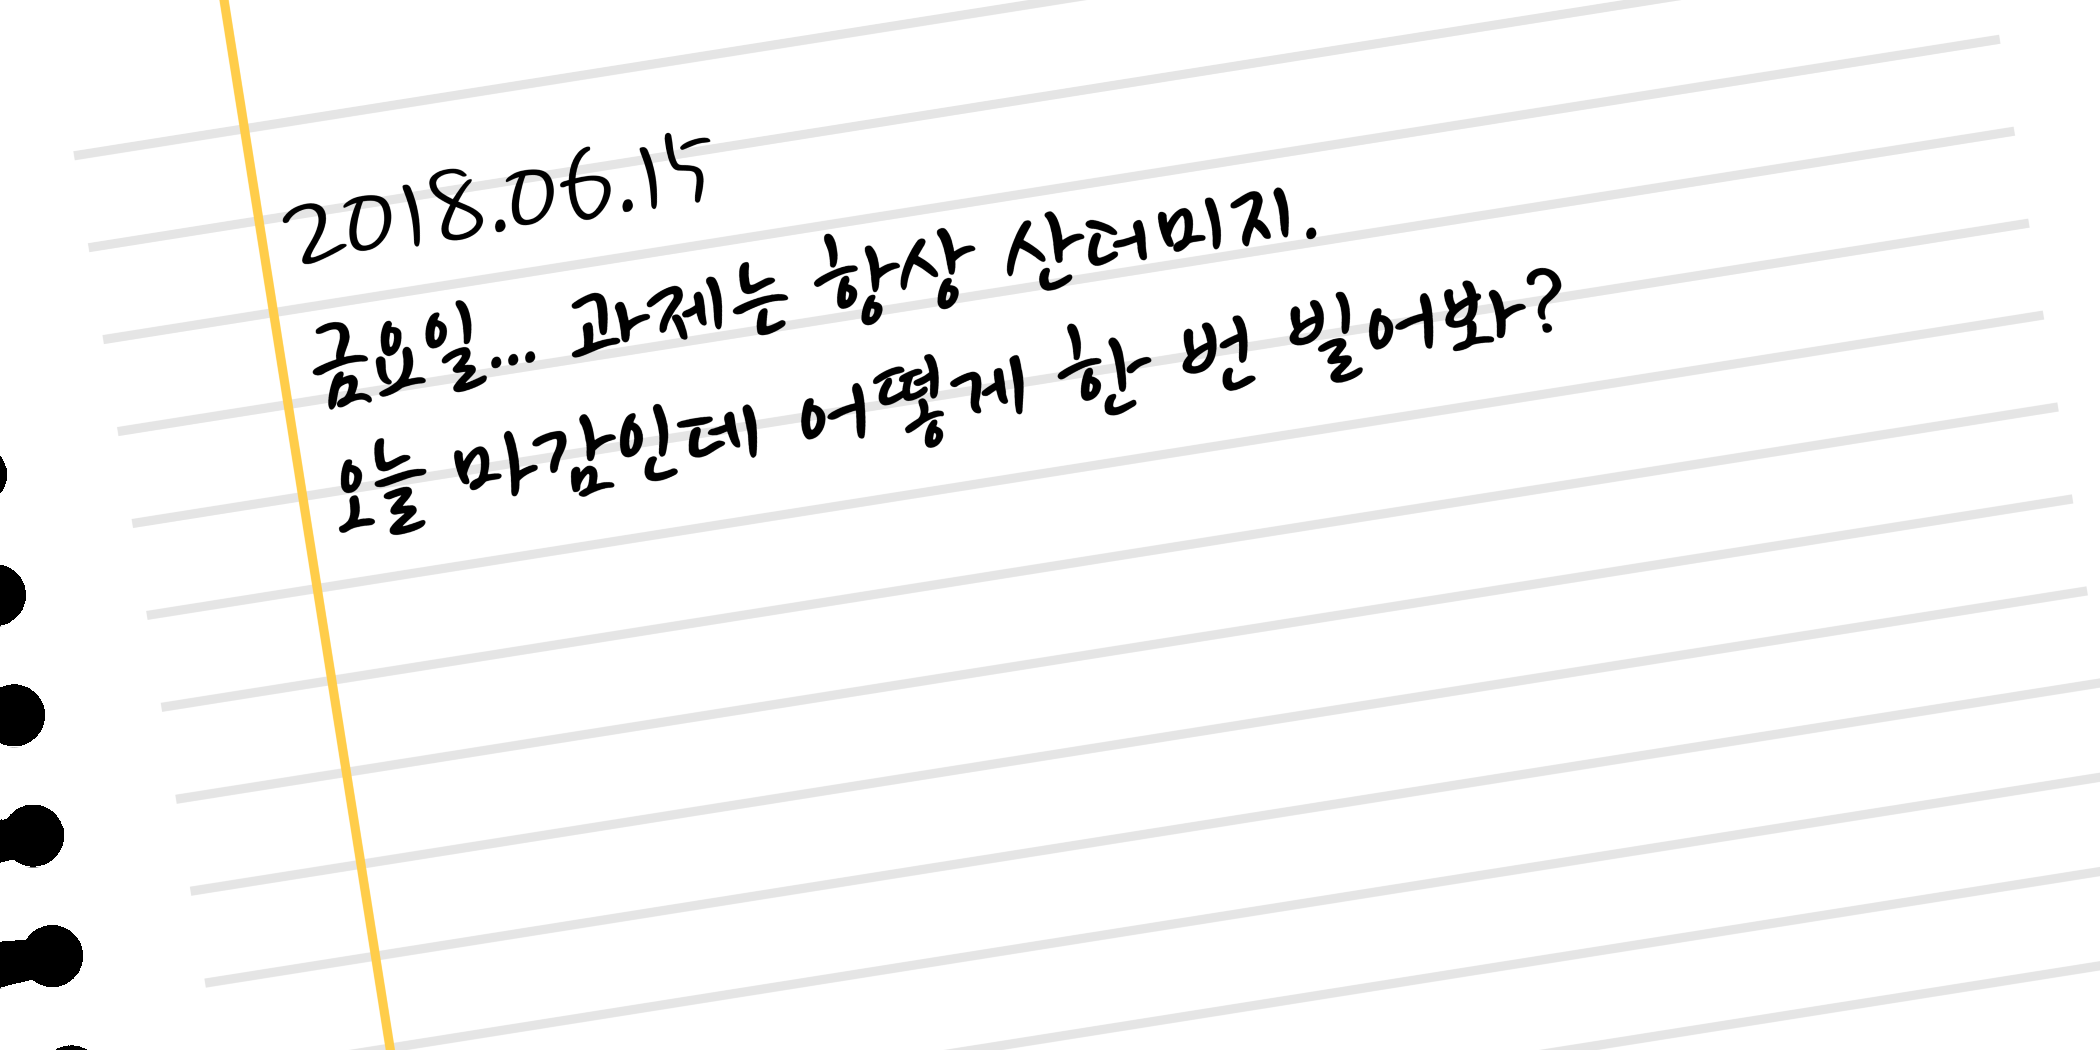 2018.06.15
금요일... 과제는 항상 산더미지.
오늘 마감인데 어떻게 한 번 빌어봐?